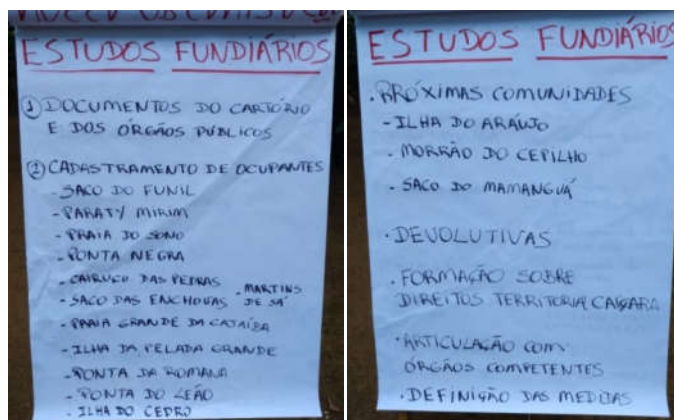 ESTUDOS FUNDIÁRIOS
① DOCUMENTOS DO CARTÓRIO
E DOS ÓRGÃOS PÚBLICOS
② CADASTRAMENTO DE OCUPANTES
- SACO DO FUNIL
- PARATY MIRIM
- PRAIA DO SONO
- PONTA NEGRA
- CAIRUÇU DAS PEDRAS
- SACO DAS ENCHOVAS - MARTINS DE SÁ
- PRAIA GRANDE DA CAJAÍBA
- ILHA DA PELADA GRANDE
- PONTA DA ROMANA
- PONTA DO LEÃO
- ILHA DO CEDRO
ESTUDOS FUNDIÁRIOS
. PRÓXIMAS COMUNIDADES
- ILHA DO ARAÚJO
- MORRÃO DO CEPILHO
- SACO DO MAMANGUÁ
. DEVOLUTIVAS
. FORMAÇÃO SOBRE
DIREITOS TERRITORIA CAIÇARA
. ARTICULAÇÃO COM
ÓRGÃOS COMPETENTES
. DEFINIÇÃO DAS MEDIDAS